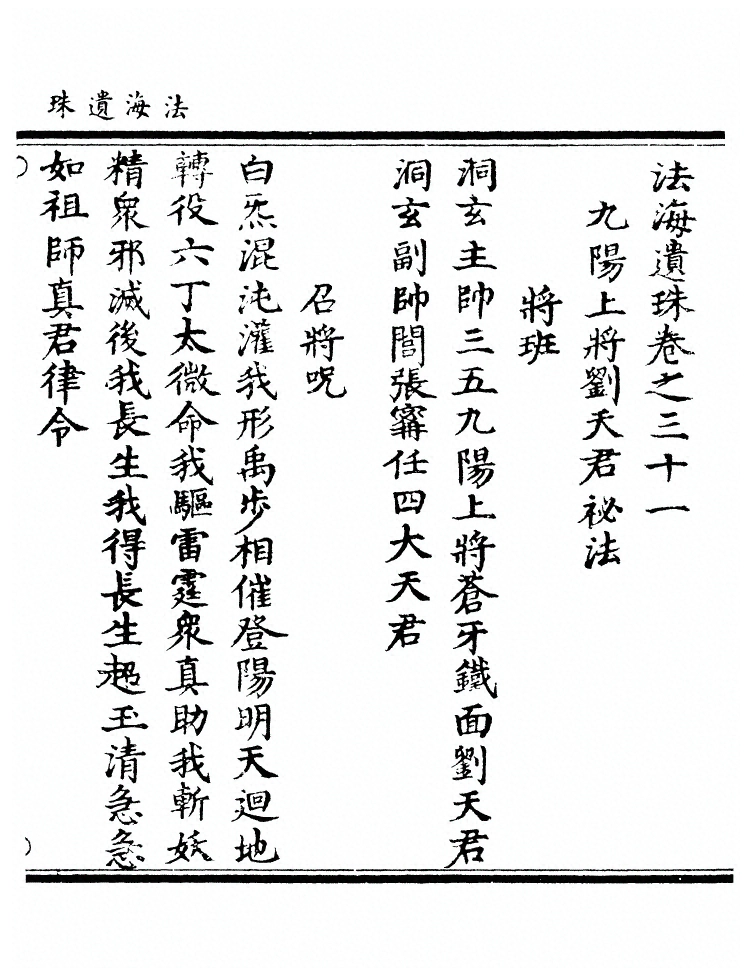 法海遺珠
法海遺珠卷之三十一
九陽上將劉天君祕法
將班
洞玄主帥三五九陽上將蒼牙鐵面劉天君
洞玄副帥閻張寗任四大天君
召將呪
白炁混沌灌我形禹步相催登陽明天迴地
轉役六丁太微命我驅雷霆衆真助我斬妖
精衆邪滅後我長生我得長生超玉清急急
如祖師真君律令